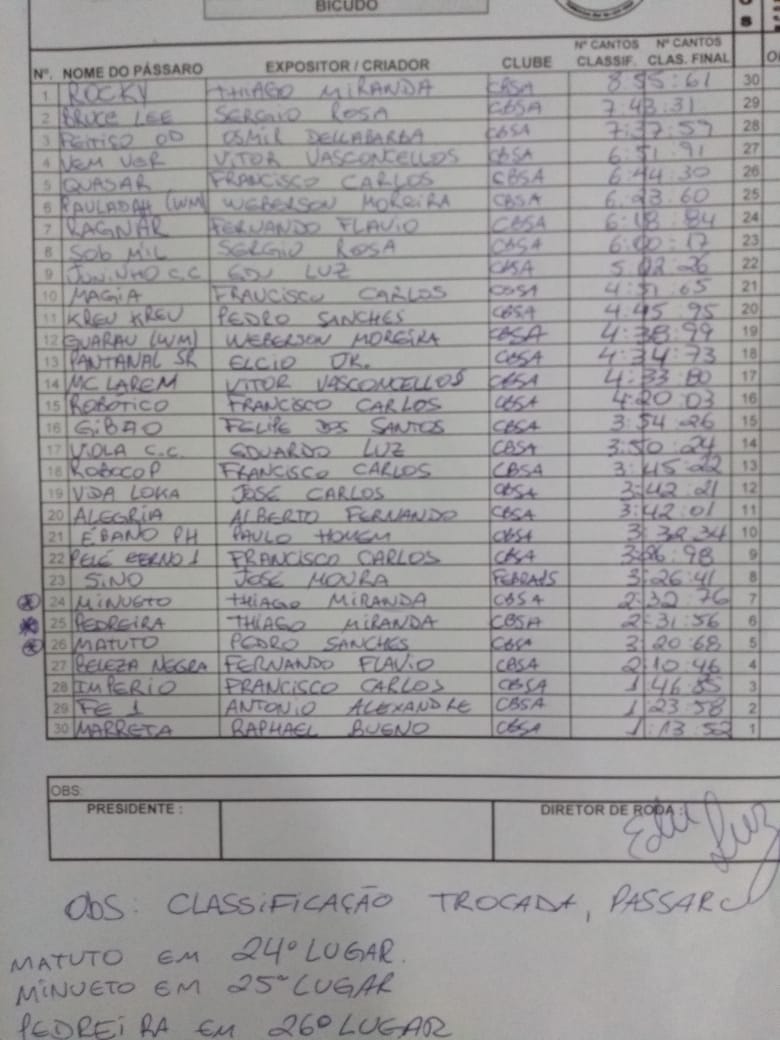 BICUDO
Nº. NOME DO PÁSSARO EXPOSITOR / CRIADOR CLUBE Nº CANTOS CLASSIF. Nº CANTOS CLAS. FINAL
1 ROCKY THIAGO MIRANDA CBSA 8:55:61 30
2 BRUCE LEE SERGIO ROSA CBSA 7:43:31 29
3 FEITIÇO OD OSMIR DELLABARBA CBSA 7:37:59 28
4 VEM VER VITOR VASCONCELLOS CBSA 6:51:91 27
5 QUASAR FRANCISCO CARLOS CBSA 6:44:30 26
6 PAULADAH (WM) WEBERSON MOREIRA CBSA 6:23:60 25
7 RAGNAR FERNANDO FLAVIO CBSA 6:18:84 24
8 SOB MIL SERGIO ROSA CBSA 6:00:17 23
9 JUNINHO C.C EDU LUZ CBSA 5:02:26 22
10 MAGIA FRANCISCO CARLOS CBSA 4:51:65 21
11 KREU KREU PEDRO SANCHES CBSA 4:45:95 20
12 GUARAU (WM) WEBERSON MOREIRA CBSA 4:38:99 19
13 PANTANAL SR ELCIO DR. CBSA 4:34:73 18
14 MC LAREM VITOR VASCONCELLOS CBSA 4:33:80 17
15 ROBÓTICO FRANCISCO CARLOS CBSA 4:20:03 16
16 GIBÃO FELIPE DOS SANTOS CBSA 3:54:26 15
17 VIOLA C.C. EDUARDO LUZ CBSA 3:50:24 14
18 ROBOCOP FRANCISCO CARLOS CBSA 3:45:22 13
19 VIDA LOKA JOSÉ CARLOS CBSA 3:42:21 12
20 ALEGRIA ALBERTO FERNANDO CBSA 3:42:01 11
21 ÉBANO PH PAULO HOMEM CBSA 3:38:34 10
22 PELÉ EERNO 1 FRANCISCO CARLOS CBSA 3:26:98 9
23 SINO JOSÉ MOURA 3:26:41 8
24 MINUETO THIAGO MIRANDA CBSA 2:32:76 7
25 PEDREIRA THIAGO MIRANDA CBSA 2:31:56 6
26 MATUTO PEDRO SANCHES CBSA 3:20:68 5
27 BELEZA NEGRA FERNANDO FLAVIO CBSA 2:10:46 4
28 IMPERIO FRANCISCO CARLOS CBSA 1:46:85 3
29 FE 1 ANTONIO ALEXANDRE CBSA 1:23:58 2
30 MARRETA RAPHAEL BUENO CBSA 1:13:52 1
OBS:
PRESIDENTE : DIRETOR DE RODA :
Edu Luz
OBS: CLASSIFICAÇÃO TROCADA, PASSARO
MATUTO EM 24º LUGAR.
MINUETO EM 25º LUGAR
PEDREIRA EM 26º LUGAR